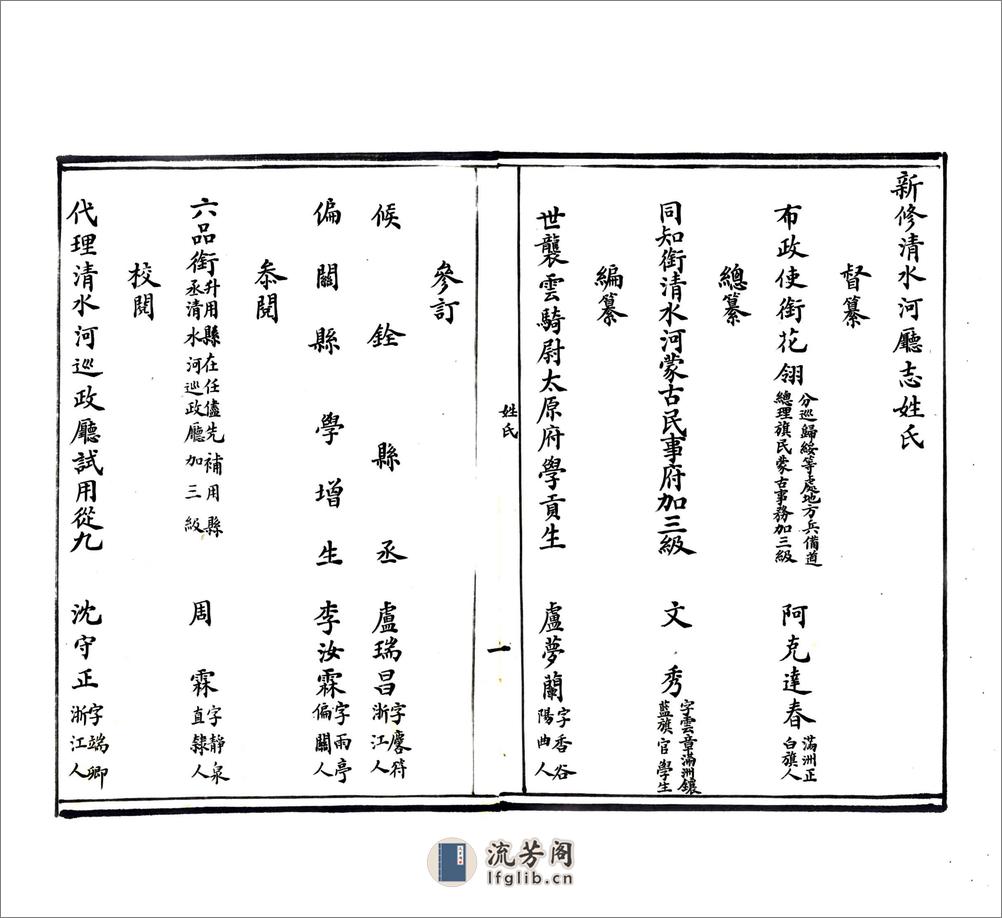 新修清水河廳志姓氏
督纂
布政使銜花翎分巡歸綏等處地方兵備道總理旗民蒙古事務加三級 阿克達春滿洲正白旗人
總纂
同知銜清水河蒙古民事府加三級 文秀字雲章滿洲鑲藍旗官學生
編纂
世襲雲騎尉太原府學貢生 盧夢蘭字香谷陽曲人
姓氏
一
參訂
候銓縣丞 盧瑞昌字麐符浙江人
偏關縣學增生 李汝霖字雨亭偏關人
叅閱
六品銜升用縣在任儘先補用縣丞清水河巡政廳加三級 周霖字靜泉直隸人
校閱
代理清水河巡政廳試用從九 沈守正字端卿浙江人
流芳阁
lfglib.cn